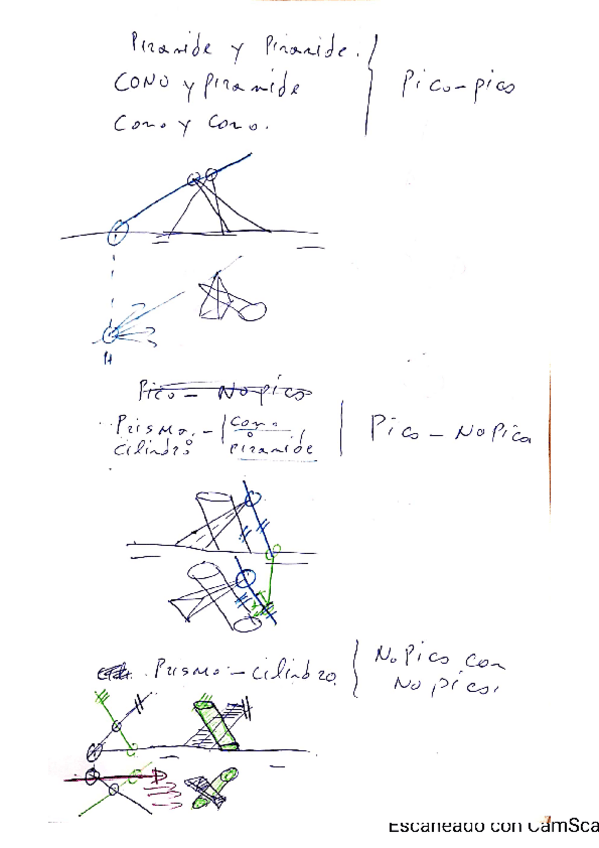 Piramide y Piramide.
CONO y piramide
Cono y Cono.
Pico-pico
H
Pico - No pico
Prisma. - Cono
cilindro o piramide
Pico - No Pico
Prisma - cilindro.
No Pico con
No pico.
Escaneado con CamSca